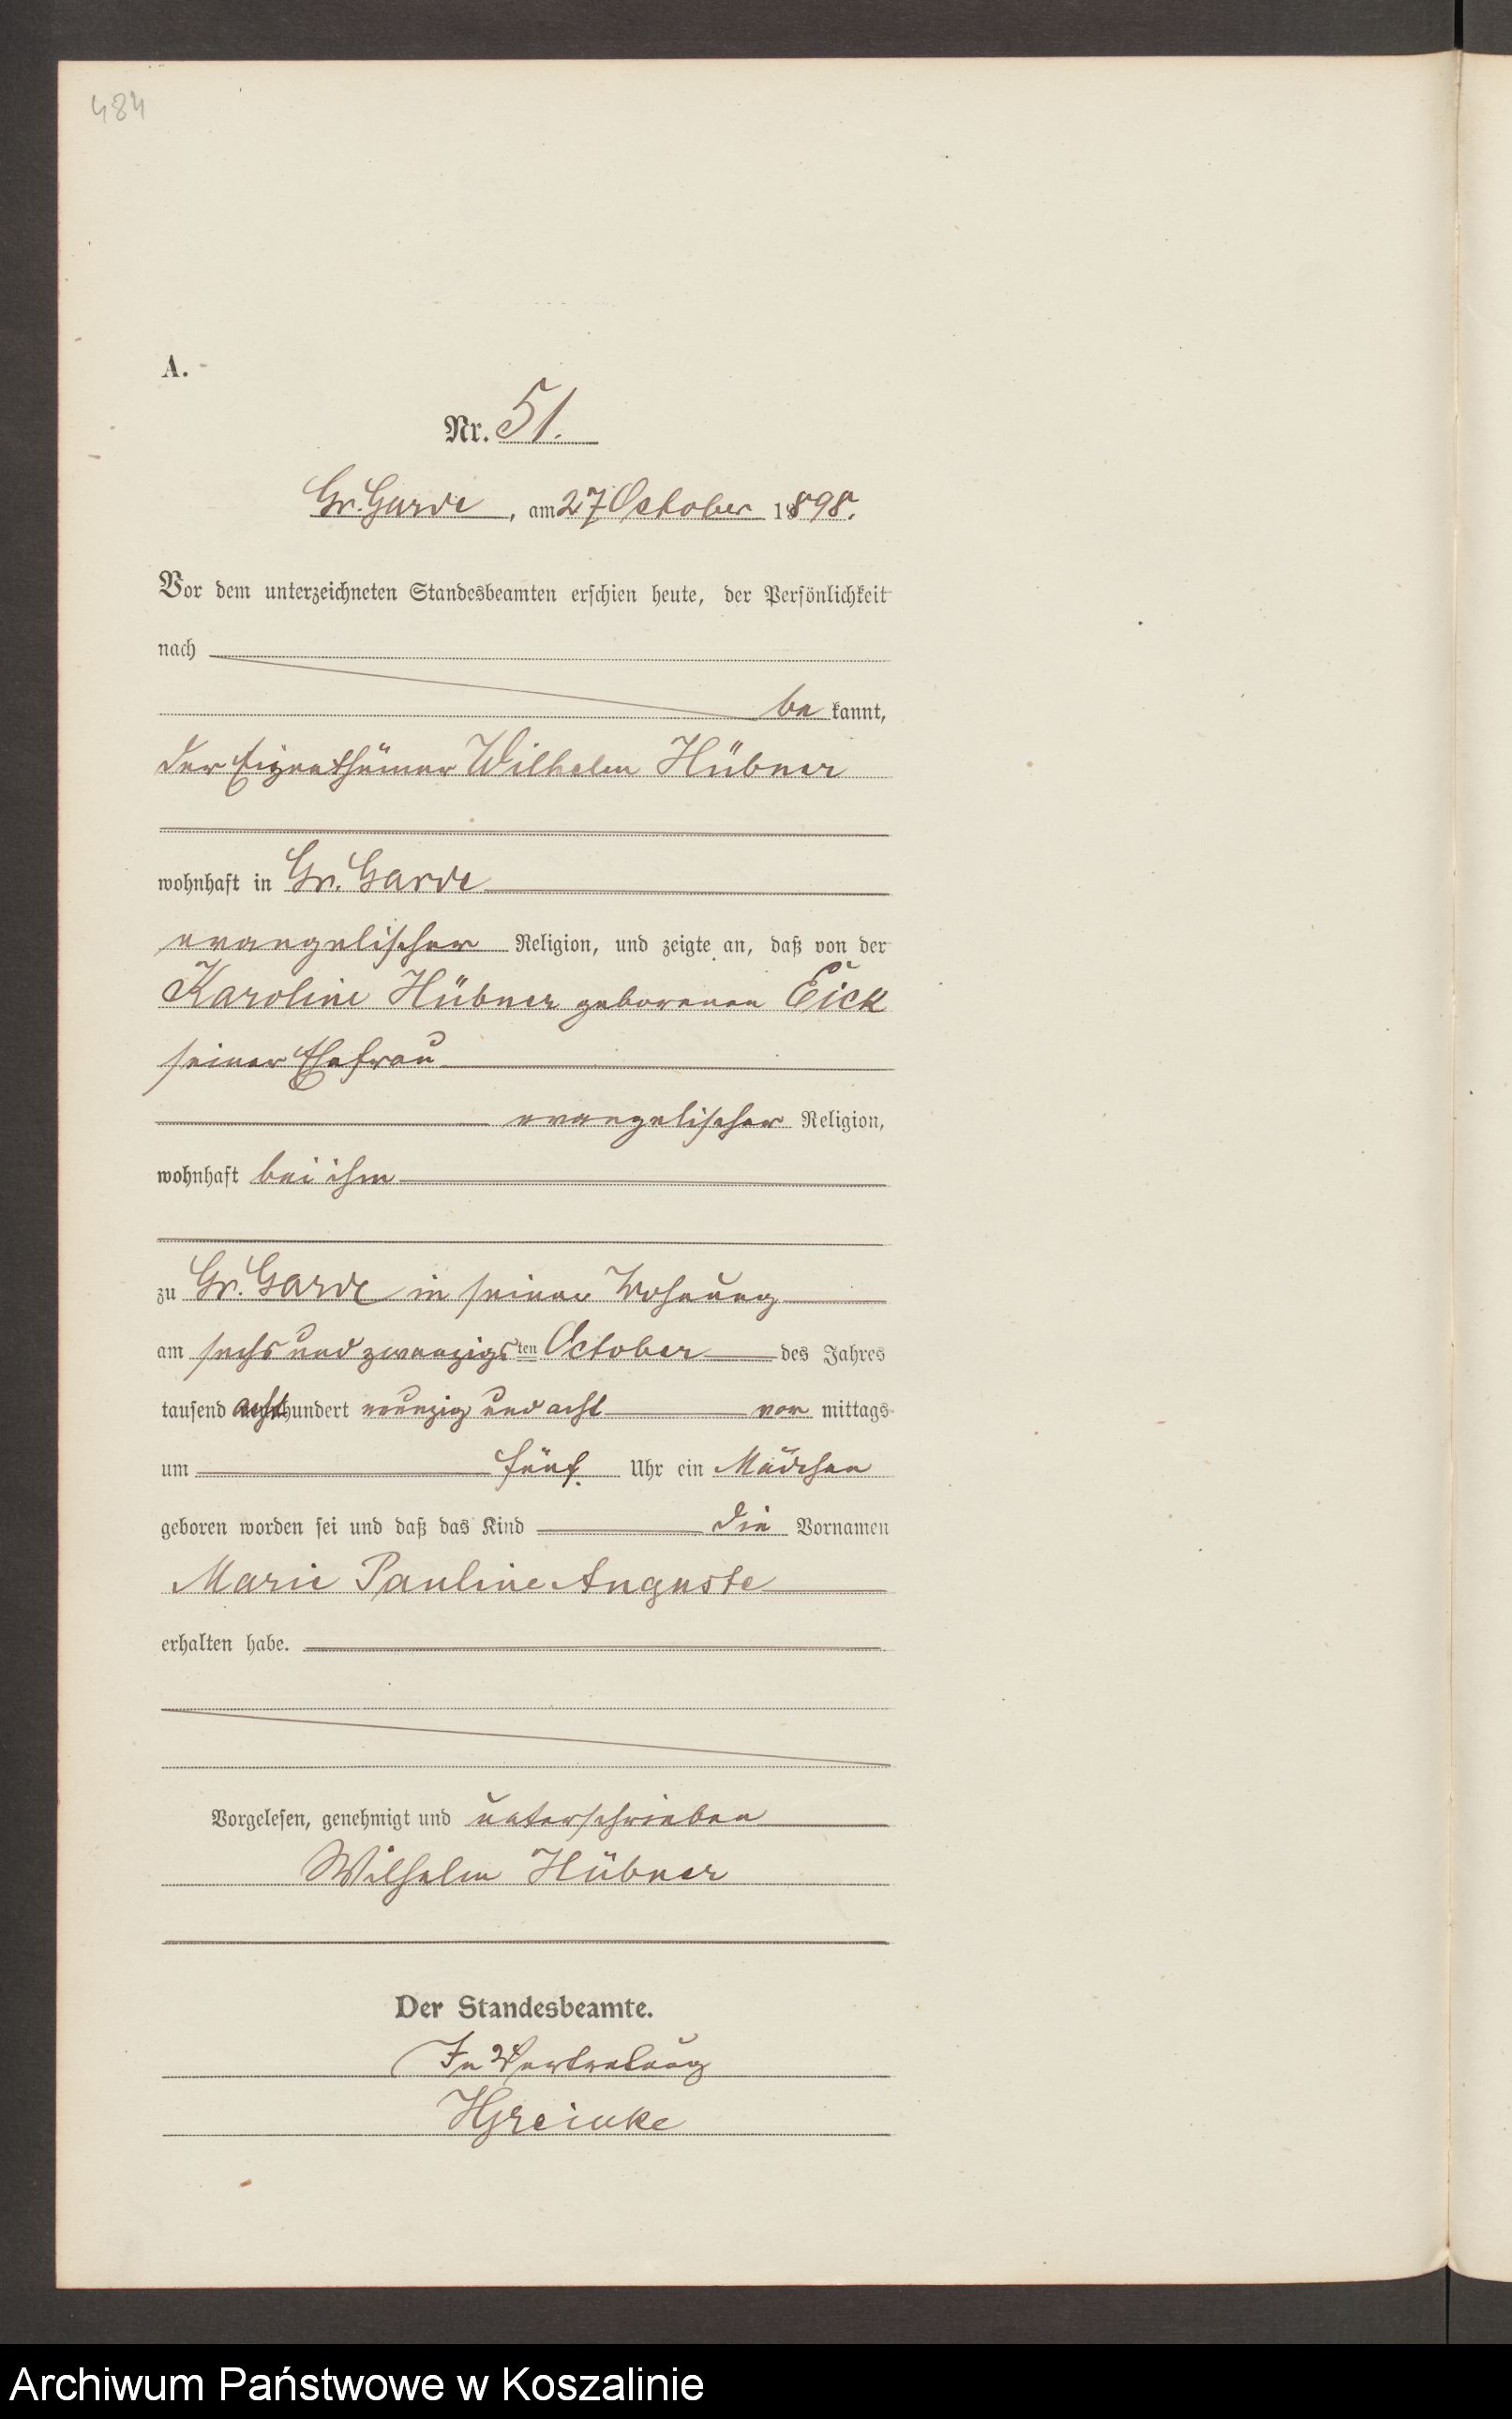 484
A.
Nr. 51.
Gr. Garde, am 27 October 1898.
Vor dem unterzeichneten Standesbeamten erschien heute, der Persönlichkeit
nach
be kannt,
der Eigenthümer Wilhelm Hübner
wohnhaft in Gr. Garde
evangelischer Religion, und zeigte an, daß von der
Karoline Hübner geborenen Eick
seiner Ehefrau
evangelischer Religion,
wohnhaft bei ihm
zu Gr. Garde in seiner Wohnung
am sechs und zwanzigsten October des Jahres
tausend achthundert neunzig und acht vor mittags
um fünf Uhr ein Mädchen
geboren worden sei und daß das Kind die Vornamen
Marie Pauline Auguste
erhalten habe.
Vorgelesen, genehmigt und unterschrieben
Wilhelm Hübner
Der Standesbeamte.
In Vertretung
HGreinke
Archiwum Państwowe w Koszalinie